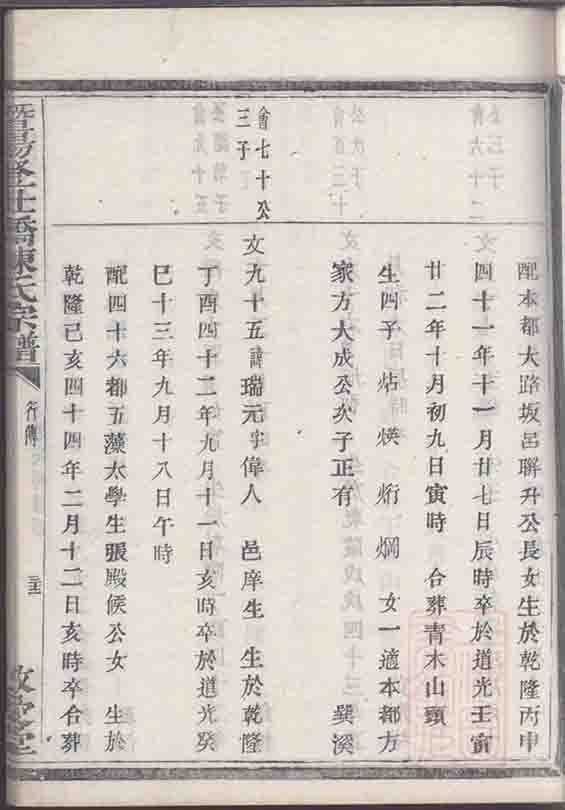 配本都大路坂呂聯升公長女生於乾隆丙申
四十一年十一月廿七日辰時卒於道光壬寅
廿二年十月初九日寅時 合葬青木山頭
生四子 炶 煐 烆 烱 女一適本都方
家方大成公次子正有 巽溪
會七十公
三子
文九十五諱瑞元字偉人 邑庠生 生於乾隆
丁酉四十二年九月十一日亥時卒於道光癸
巳十三年九月十八日午時
配四十六都五藻太學生張殿候公女 生於
乾隆己亥四十四年二月十二日亥時卒合葬
暨陽 橋陳氏宗譜
行傳